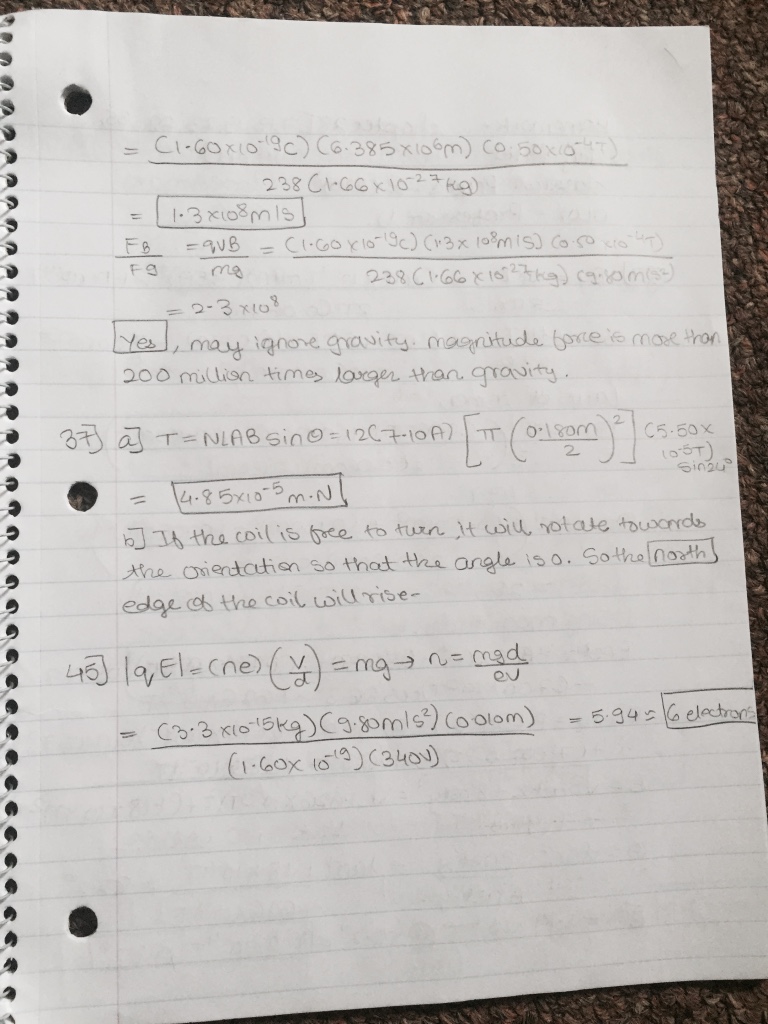 = (1.60x10⁻¹⁹C) (6.385x10⁶m) (0.50x10⁻⁴T)
238 (1.66x10⁻²⁷kg)
= 1.3x10⁸m/s
FB/Fg = qVB/mg = (1.60x10⁻¹⁹C) (1.3x10⁸m/s) (0.50x10⁻⁴T)
238 (1.66x10⁻²⁷kg) (9.80m/s²)
= 2.3x10⁸
Yes, may ignore gravity. magnitude force is more than
200 million times larger than gravity.
37] a] T = NIAB sinθ = 12(7.10A) [π (0.180m/2)²] (5.50x
10⁻⁵T)
sin24°
= 4.85x10⁻⁵ m.N
b] If the coil is free to turn, it will rotate towards
the orientation so that the angle is 0. So the north
edge of the coil will rise-
45] |qE| = (ne) (V/d) = mg → n = mgd/eV
= (3.3x10⁻¹⁵kg) (9.80m/s²) (0.010m) = 5.94 ≈ 6 electrons
(1.60x10⁻¹⁹) (340V)